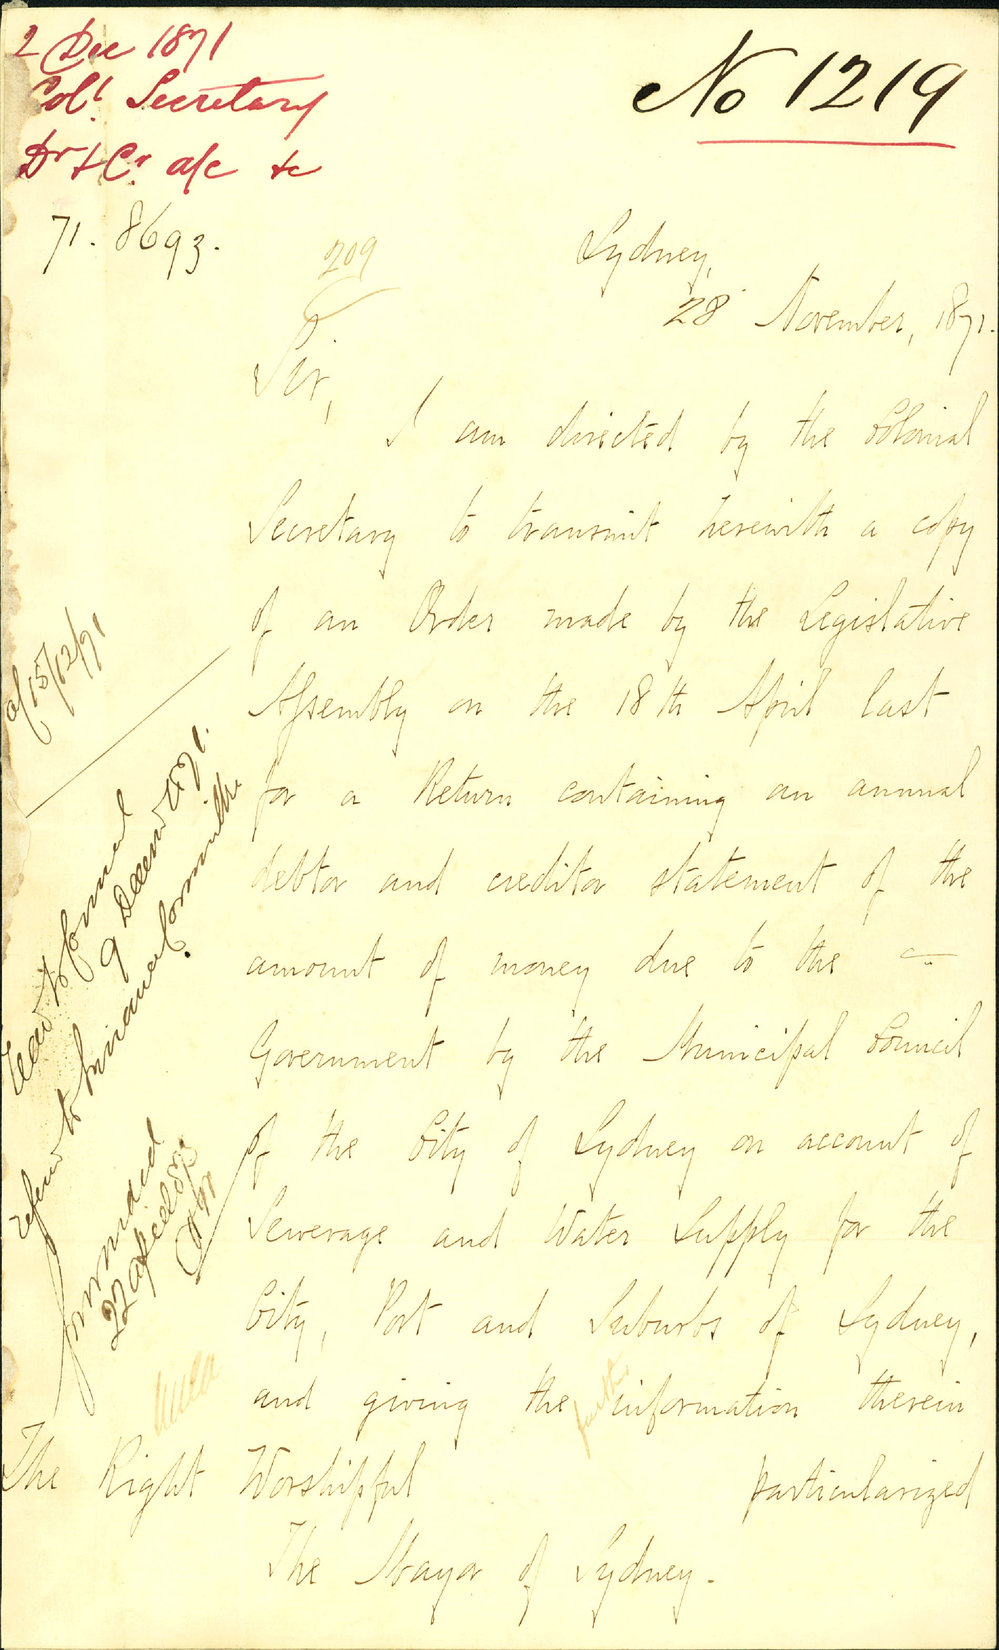 2 Dec 1871
Coll Secretary
Dr & Cr a/c &c
No 1219
71. 8693.
209
Sydney,
28 November, 1871.
Sir,
I am directed by the Colonial
Secretary to transmit herewith a copy
of an Order made by the Legislative
Assembly on the 18th April last
for a Return containing an annual
debtor and creditor statement of the
amount of money due to the
Government by the Municipal Council
of the City of Sydney on account of
Sewerage and Water Supply for the
City, Port and Suburbs of Sydney,
and giving the further information therein
particularized
The Right Worshipful
The Mayor of Sydney.
15/12/71
Read to Council
9 December 1871.
refer to Finance Committee
22 April